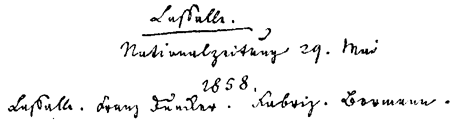 Lassalle.
Nationalzeitung 29. Mai
1858.
Lassalle. Franz Duncker. Fabriz. Bormann.